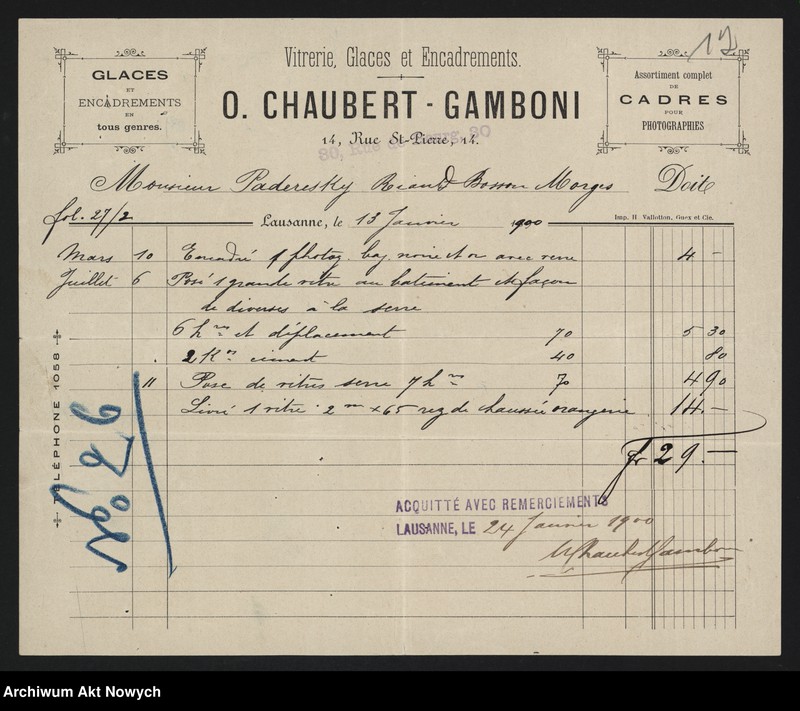 12
GLACES
ET
ENCADREMENTS
EN
tous genres.
Vitrerie, Glaces et Encadrements.
O. CHAUBERT - GAMBONI
14, Rue St-Pierre, 14.
Assortiment complet
DE
CADRES
POUR
PHOTOGRAPHIES
Monsieur Paderesky Riand Bosson Morges Doit
fol. 27/2
Lausanne, le 13 Janvier 1900
Imp. H Vallotton, Guex et Cie.
Mars 10 Encadré 1 photog. bag. noire et or avec verre 4 -
Juillet 6 Posé 1 grande vitre au batiment et façon
de diverses à la serre
6 h res et déplacement 70 5 30
2 Kos ciment 40 80
11 Pose de vitres serre 7 h res 70 4 90
Livré 1 vitre 2 m x 65 rez de chaussée orangerie 14.-
fr 29.-
TÉLÉPHONE 1058
No 26
ACQUITTÉ AVEC REMERCIEMENTS
LAUSANNE, LE 24 Janvier 1900
Chaubert Gamboni
Archiwum Akt Nowych